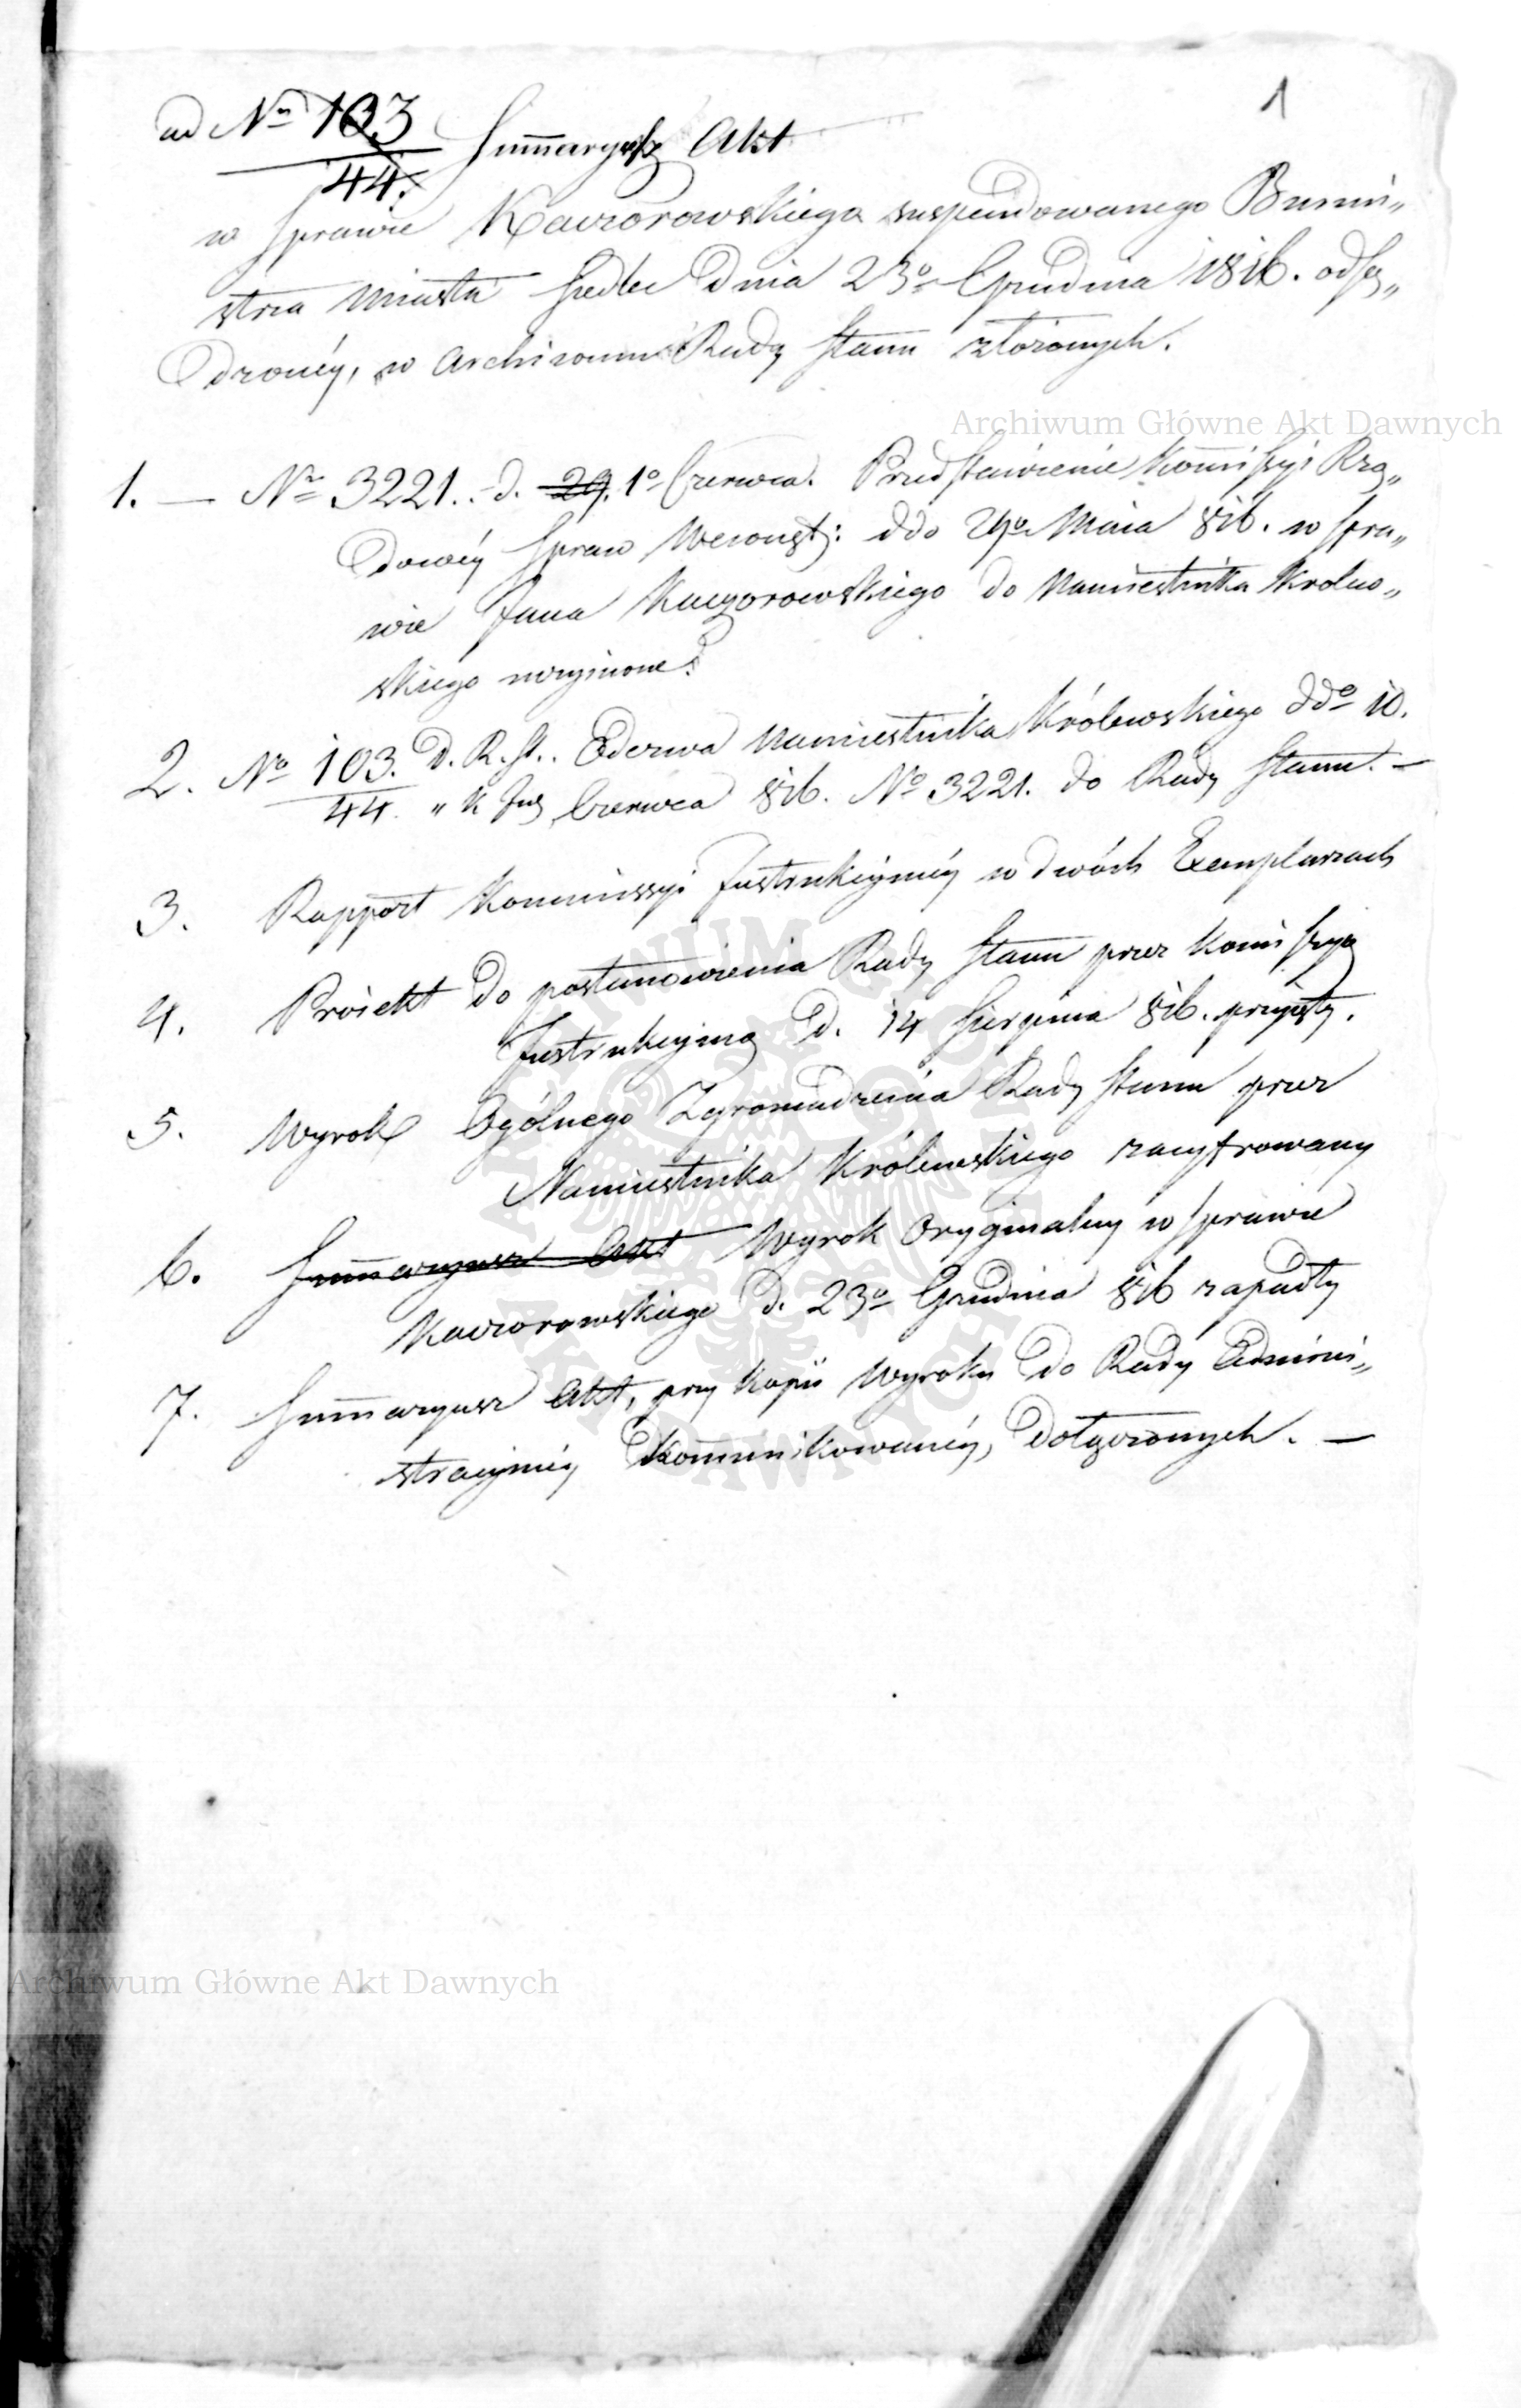 1
ad Nro 103
44.
Sum̄aryusz Akt
w sprawie Kaczorowskiego suspendowanego Burmi„
strza Miasta Siedlec Dnia 23o Grudnia 1816. odsą„
dzonéy, w Archiwum Rady Stanu złożonych.
Archiwum Główne Akt Dawnych
1. — Nro 3221. d. 29. 1o Czerwca. Przedstawienie Kom̄issyi Rzą„
dowéy Spraw Wewnęt: ddo 29o Maia 816. w spra„
wie Jana Kaczorowskiego do Namiestnika Królew„
skiego
2. No 103. D. R. St. Odezwa Namiestnika Królewskiego ddo 10.
44. „ K Ins Czerwca 816. No 3221. do Rady Stanu. —
3. Rapport Kommissyi Instrukcyinéy w dwóch Exemplarzach
4. Proiekt do postanowienia Rady Stanu przez Kom̄issyą
Instrukcyiną d. 14 Sierpnia 816. przyięty.
5. Wyrok Ogólnego Zgromadzenia Rady Stanu przez
Namiestnika Królewskiego zacyfrowany
6. Sum̄aryusz Akt Wyrok Oryginalny w sprawie
Kaczorowskiego d. 23o Grudnia 816 zapadły
7. Sum̄aryusz Akt, przy kopii Wyroku do Rady Admini„
stracyinéy kom̄unikowanéy, dołączonych. —
Archiwum Główne Akt Dawnych